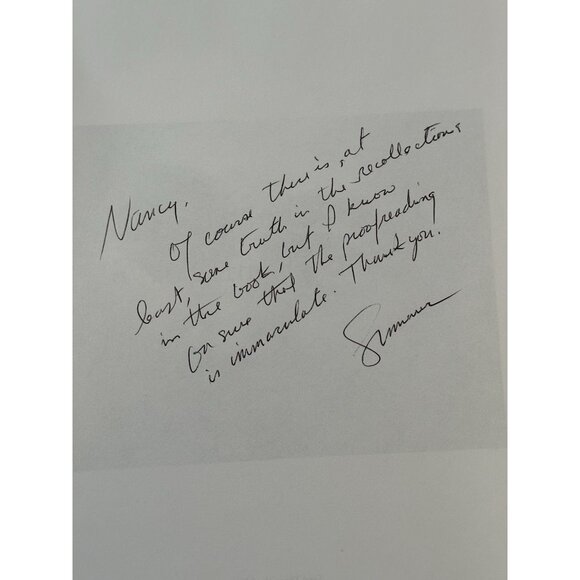 Nancy,
Of course there is, at
least, some truth in the recollections
in the book, but I know
for sure that the proofreading
is immaculate. Thank you.
Sumner